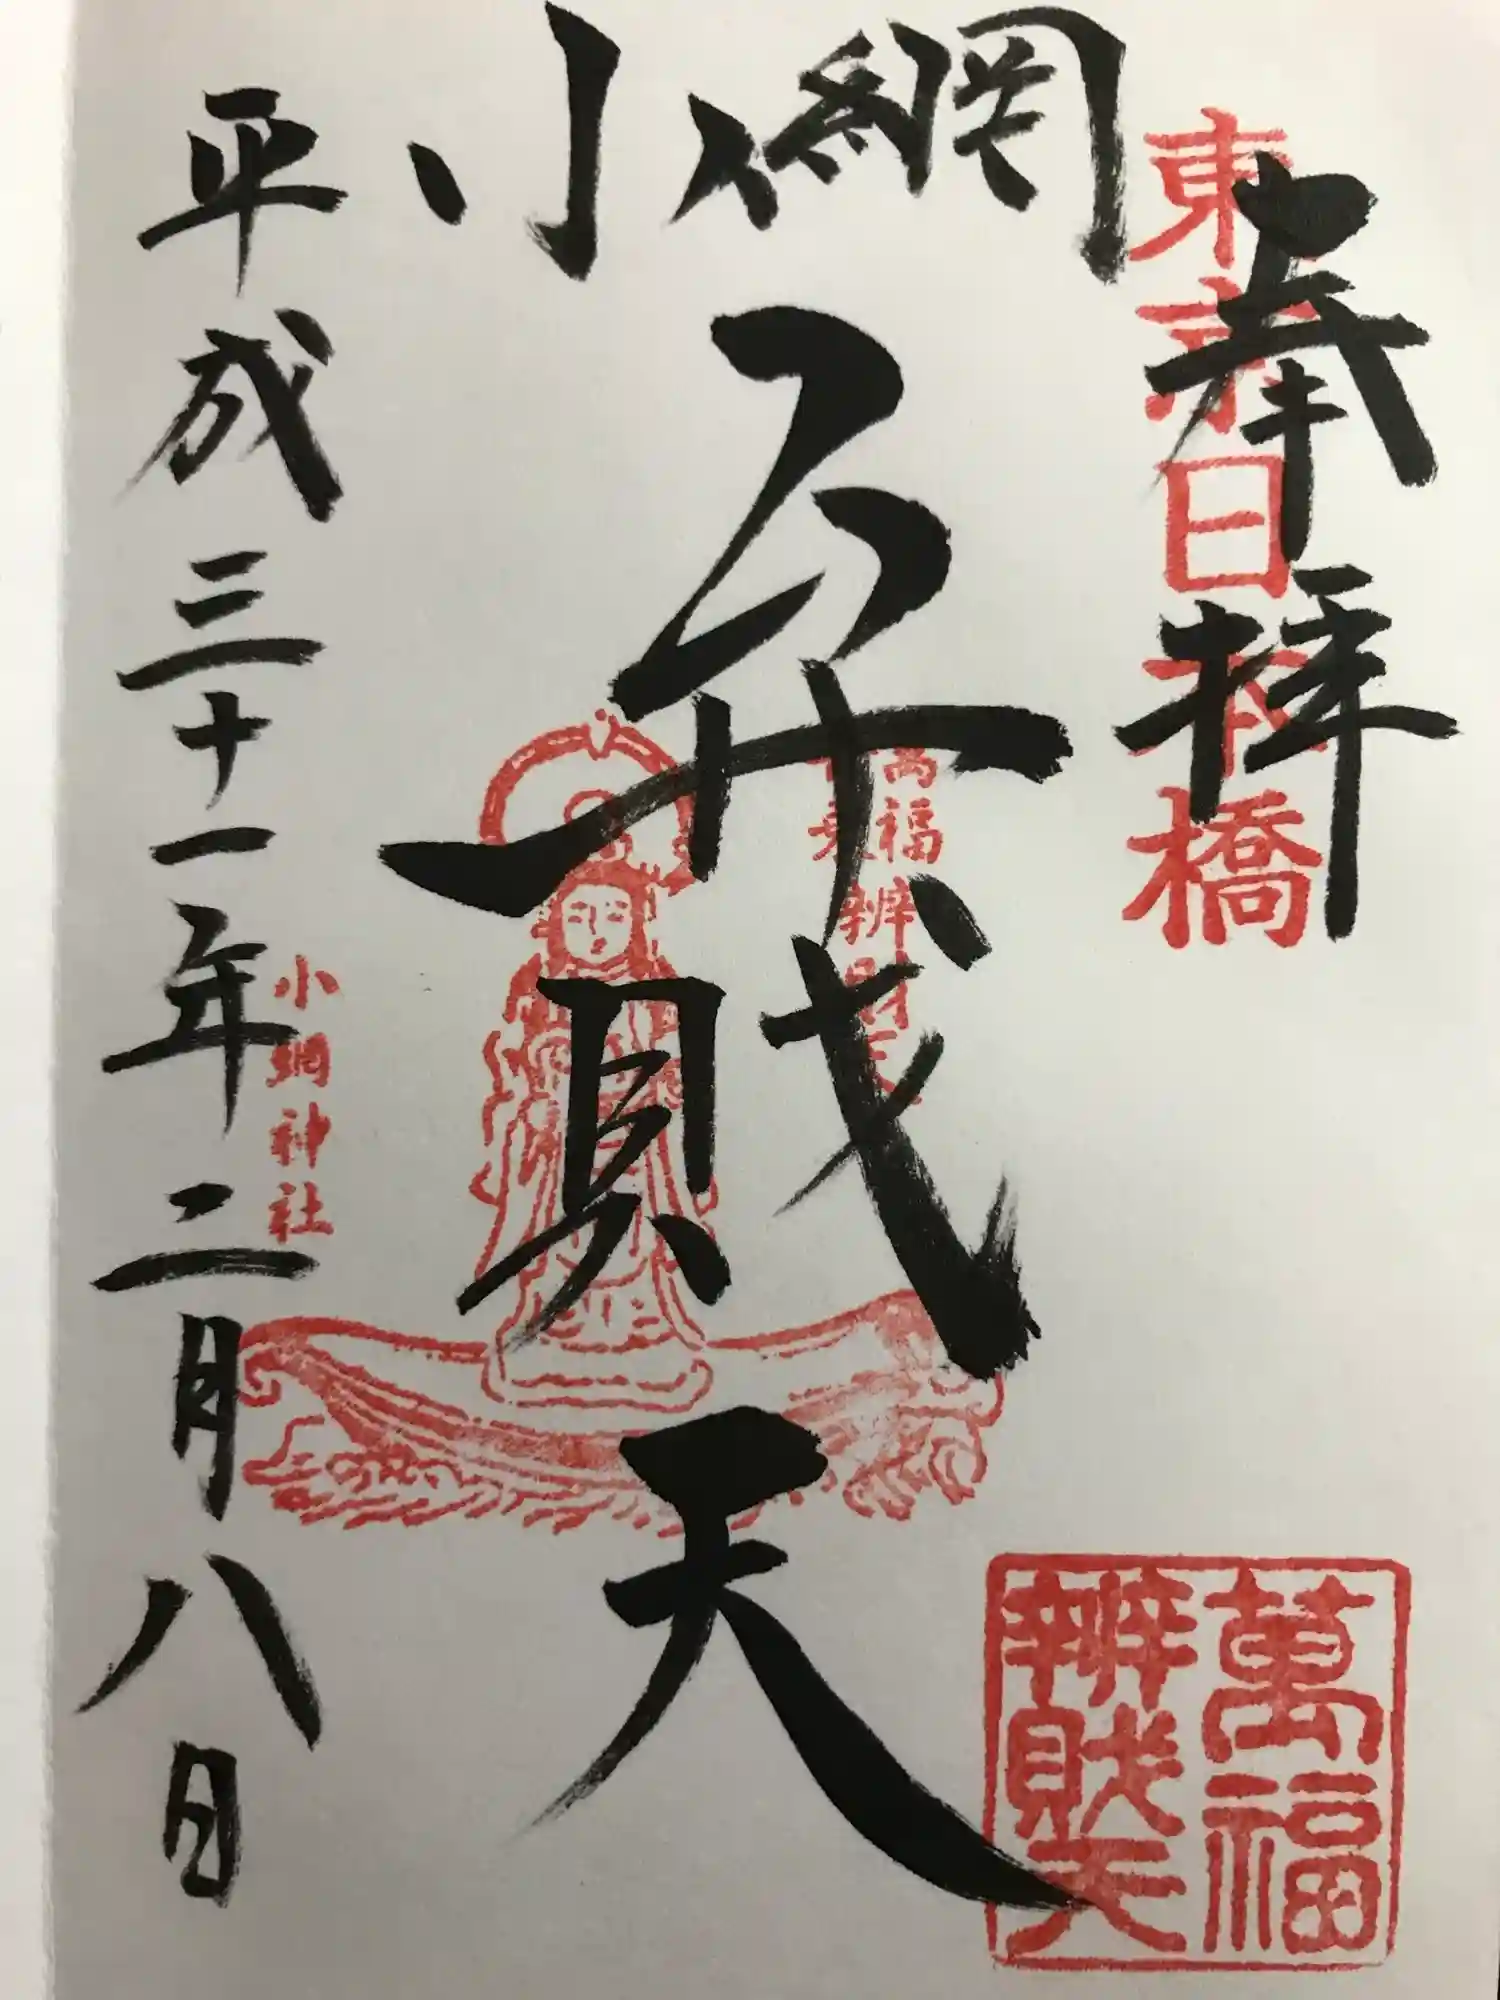 奉拝
東京日本橋
小網
弁財天
萬福
辨財天
小網神社
平成三十一年二月八日
萬福
辨財天